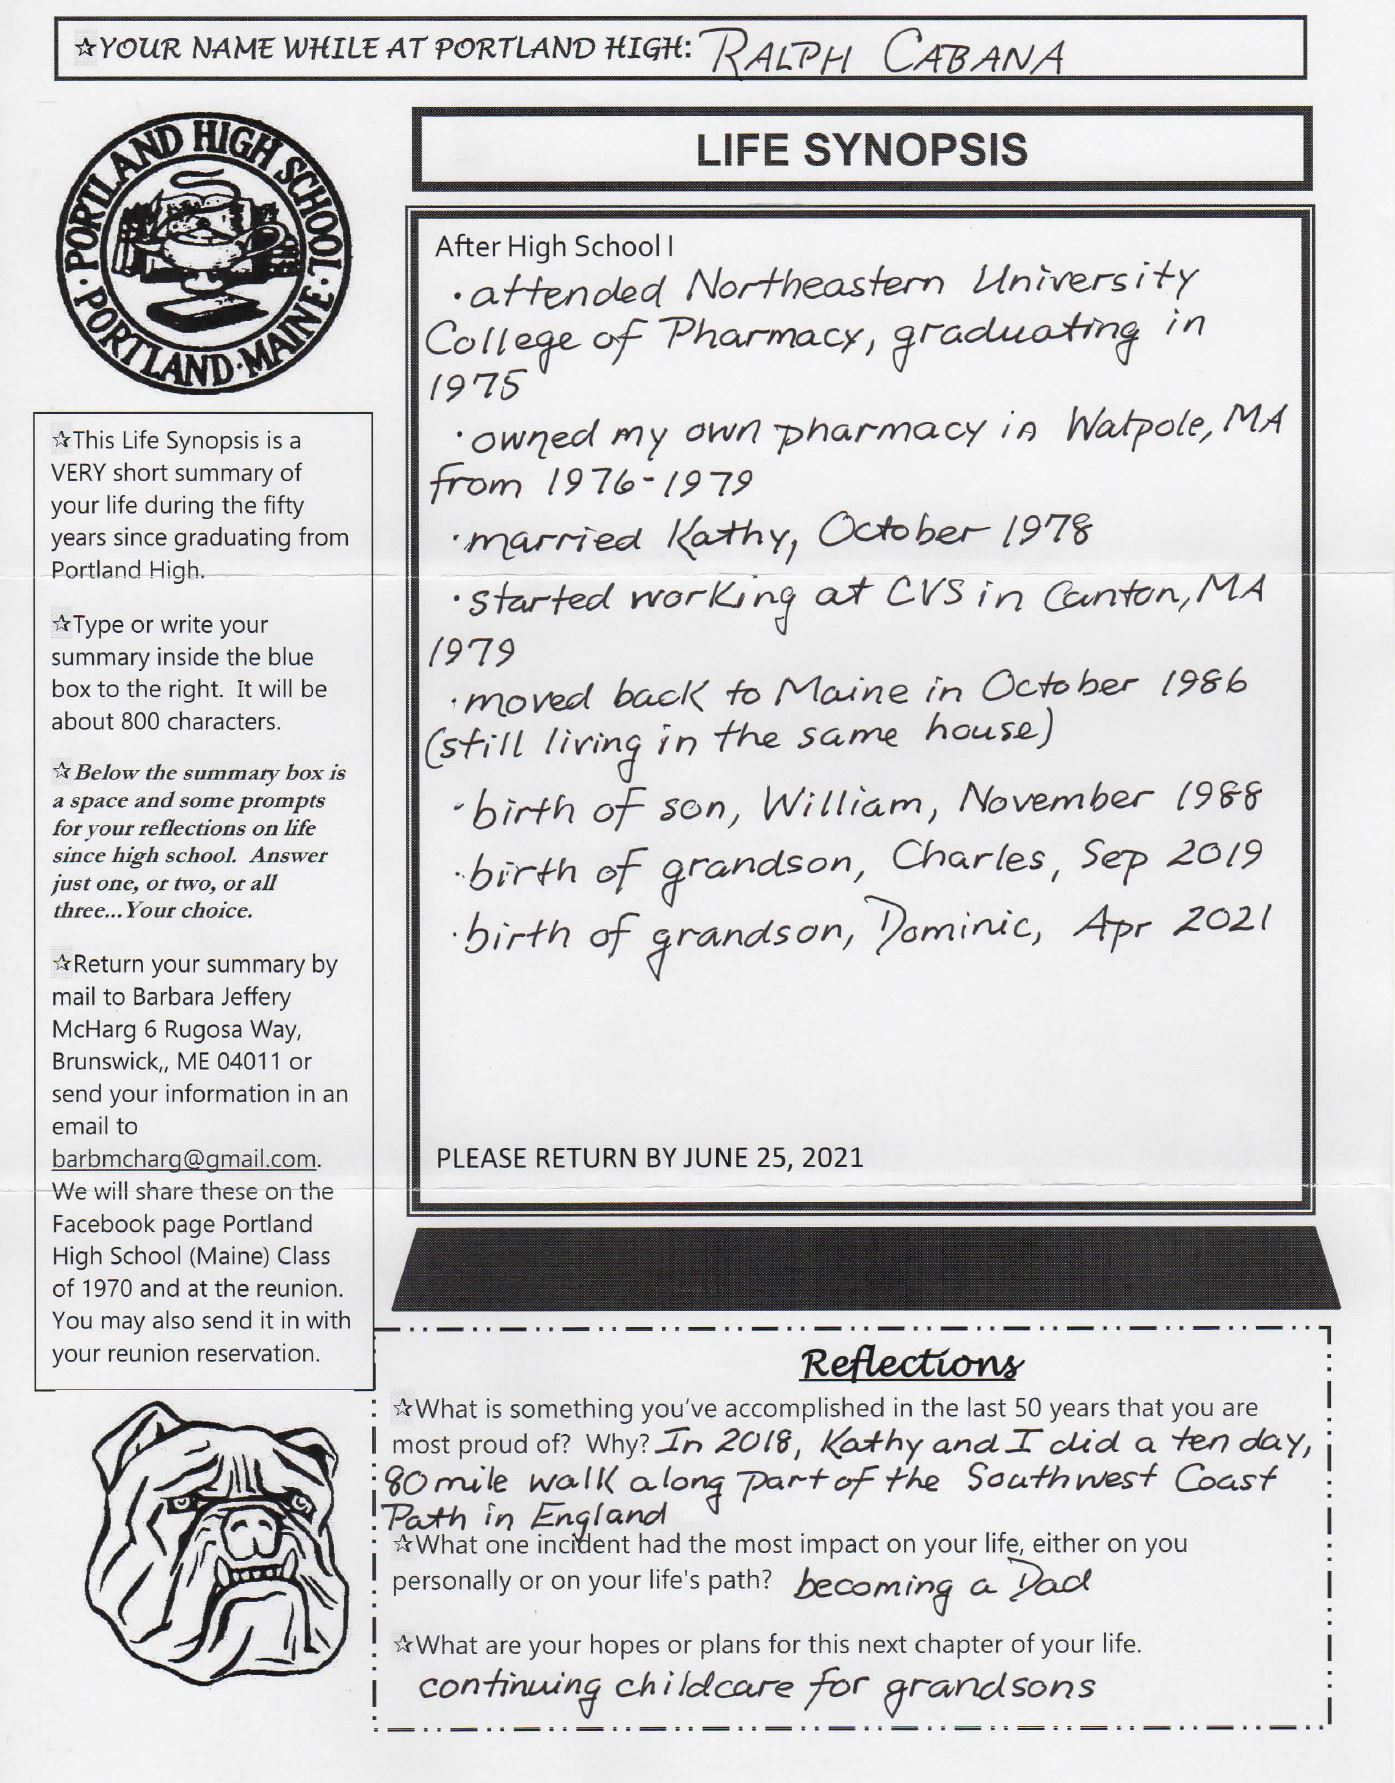 ☆YOUR NAME WHILE AT PORTLAND HIGH: RALPH CABANA
PORTLAND HIGH SCHOOL · PORTLAND · MAINE ·
LIFE SYNOPSIS
☆This Life Synopsis is a
VERY short summary of
your life during the fifty
years since graduating from
Portland High.
☆Type or write your
summary inside the blue
box to the right. It will be
about 800 characters.
☆Below the summary box is
a space and some prompts
for your reflections on life
since high school. Answer
just one, or two, or all
three...Your choice.
☆Return your summary by
mail to Barbara Jeffery
McHarg 6 Rugosa Way,
Brunswick,, ME 04011 or
send your information in an
email to
barbmcharg@gmail.com.
We will share these on the
Facebook page Portland
High School (Maine) Class
of 1970 and at the reunion.
You may also send it in with
your reunion reservation.
After High School I
· attended Northeastern University
College of Pharmacy, graduating in
1975
· owned my own pharmacy in Walpole, MA
from 1976-1979
· married Kathy, October 1978
· started working at CVS in Canton, MA
1979
· moved back to Maine in October 1986
(still living in the same house)
- birth of son, William, November 1988
· birth of grandson, Charles, Sep 2019
· birth of grandson, Dominic, Apr 2021
PLEASE RETURN BY JUNE 25, 2021
Reflections
☆What is something you've accomplished in the last 50 years that you are
most proud of? Why? In 2018, Kathy and I did a ten day,
80 mile walk along part of the Southwest Coast
Path in England
☆What one incident had the most impact on your life, either on you
personally or on your life's path? becoming a Dad
☆What are your hopes or plans for this next chapter of your life.
continuing childcare for grandsons